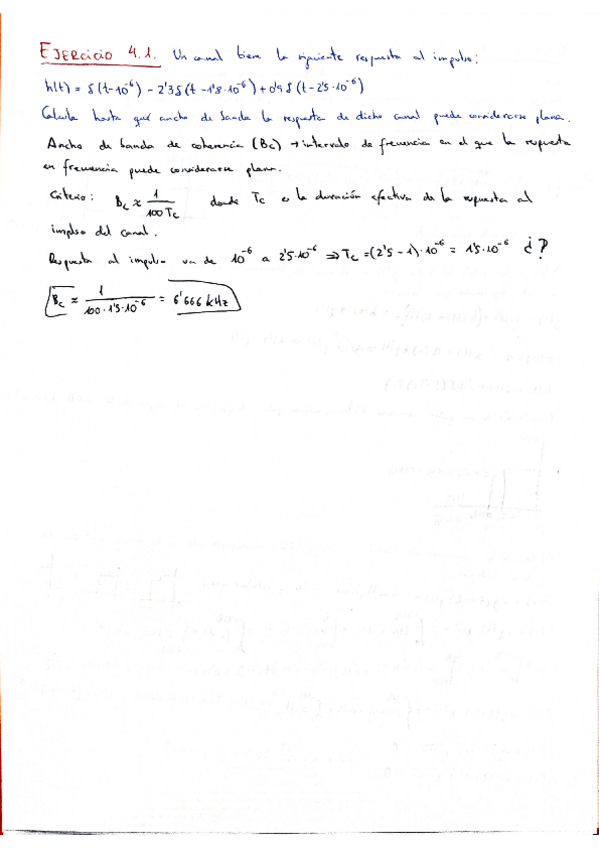 EJERCICIO 4.1. Un canal tiene la siguiente respuesta al impulso:
h(t) = δ(t-10⁻⁶) - 2'3δ(t-1'8·10⁻⁶) + 0'4δ(t-2'5·10⁻⁶)
Calcula hasta qué ancho de banda la respuesta de dicho canal puede considerarse plana.
Ancho de banda de coherencia (Bc) → intervalo de frecuencia en el que la respuesta
en frecuencia puede considerarse plana.
Criterio: Bc ≈ 1/(100 Tc) donde Tc es la duración efectiva de la respuesta al
impulso del canal.
Respuesta al impulso va de 10⁻⁶ a 2'5·10⁻⁶ ⇒ Tc = (2'5 - 1)·10⁻⁶ = 1'5·10⁻⁶ ¿?
Bc ≈ 1/(100·1'5·10⁻⁶) = 6'666 kHz